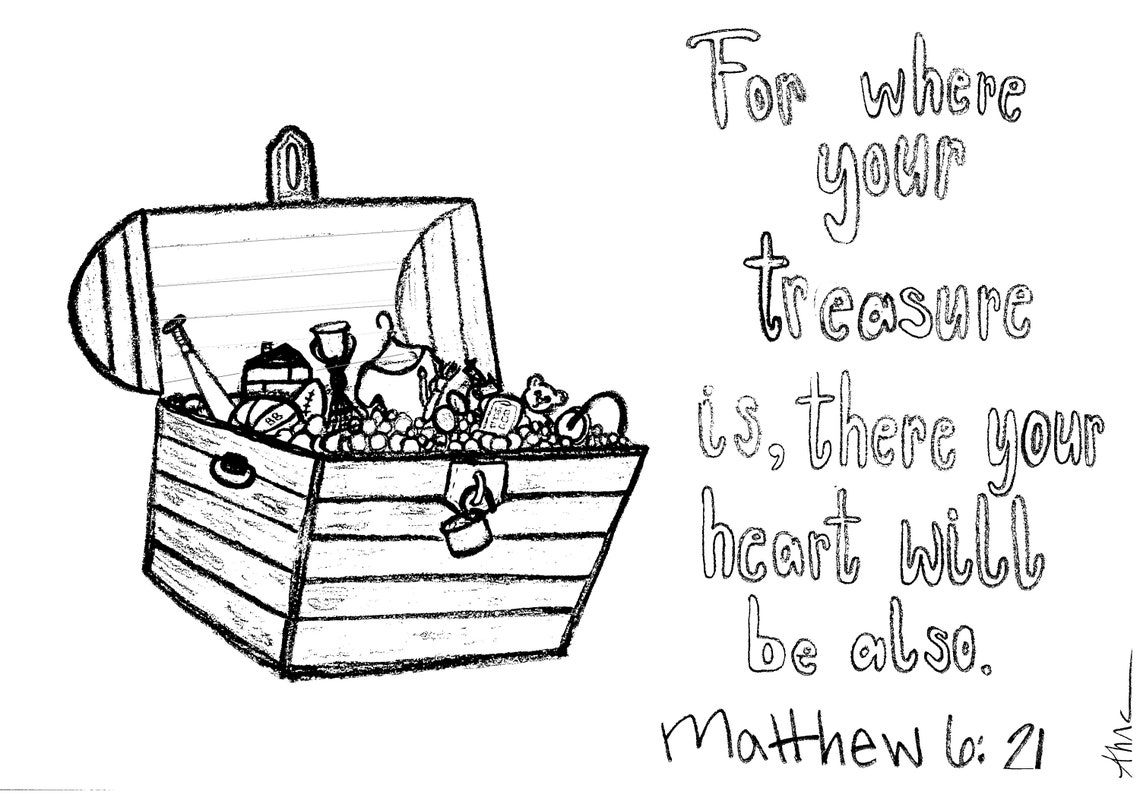 For where
your
treasure
is, there your
heart will
be also.
Matthew 6: 21